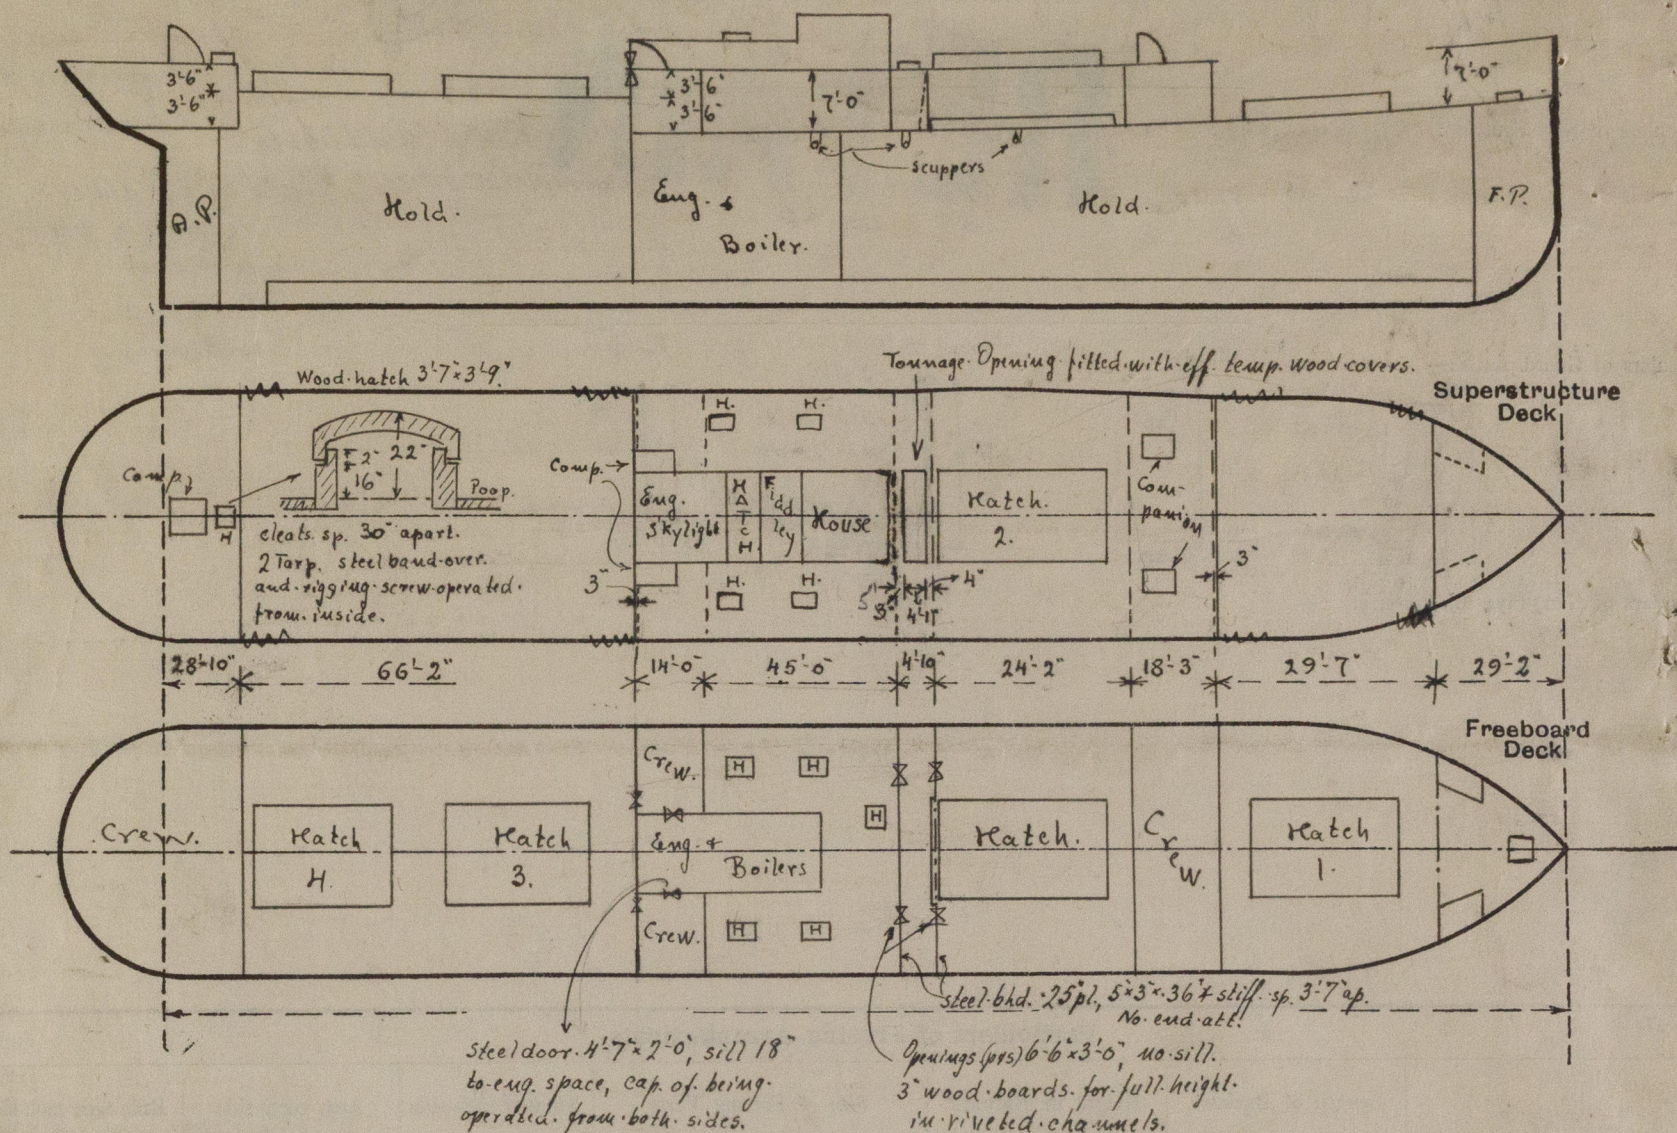 3'-6"
3'-6"
3'-6"
3'-6"
7'-0"
7'-0"
scuppers
A.P.
Hold.
Eng. &
Boiler.
Hold.
F.P.
Tonnage Opening fitted with eff. temp. wood covers.
Wood hatch 3'-7" x 3'-9"
Superstructure
Deck
H.
H.
2" 22"
16"
Poop.
Comp.
Comp.
H
cleats sp. 30" apart.
2 Tarp. steel band over
and rigging screw operated
from inside.
Eng.
Skylight
HATCH
Fiddley
House
Hatch
2.
Com-
panion
3"
3"
H.
H.
5"
3"
4'4"
4"
28'-10"
66'-2"
14'-0"
45'-0"
4'-10"
24'-2"
18'-3"
29'-7"
29'-2"
Freeboard
Deck
Crew.
H
H
Crew.
Hatch
4.
Hatch
3.
Eng. &
Boilers
H
Hatch.
Crew.
Hatch
1.
Crew.
H
H
steel bhd. .25" pl., 5" x 3" x .36" stiff. sp. 3'-7" ap.
No end att.
Steel door 4'-7" x 2'-0", sill 18"
to eng. space, cap. of being
operated from both sides.
Openings (prs) 6'-6" x 3'-0", no sill.
3" wood boards for full height
in riveted channels.